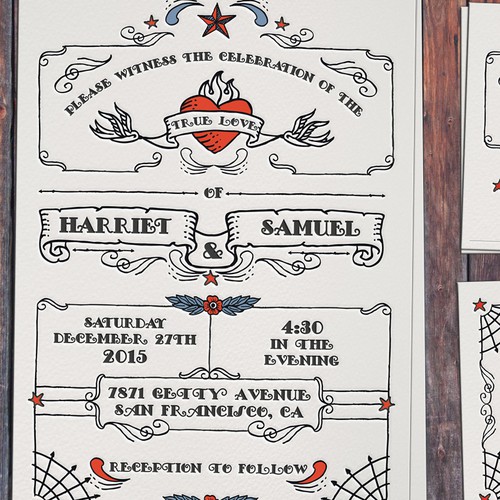 PLEASE WITNESS THE CELEBRATION OF THE
TRUE LOVE
OF
HARRIET & SAMUEL
SATURDAY
DECEMBER 27TH
2015
4:30
IN THE
EVENING
7871 GETTY AVENUE
SAN FRANCISCO, CA
RECEPTION TO FOLLOW